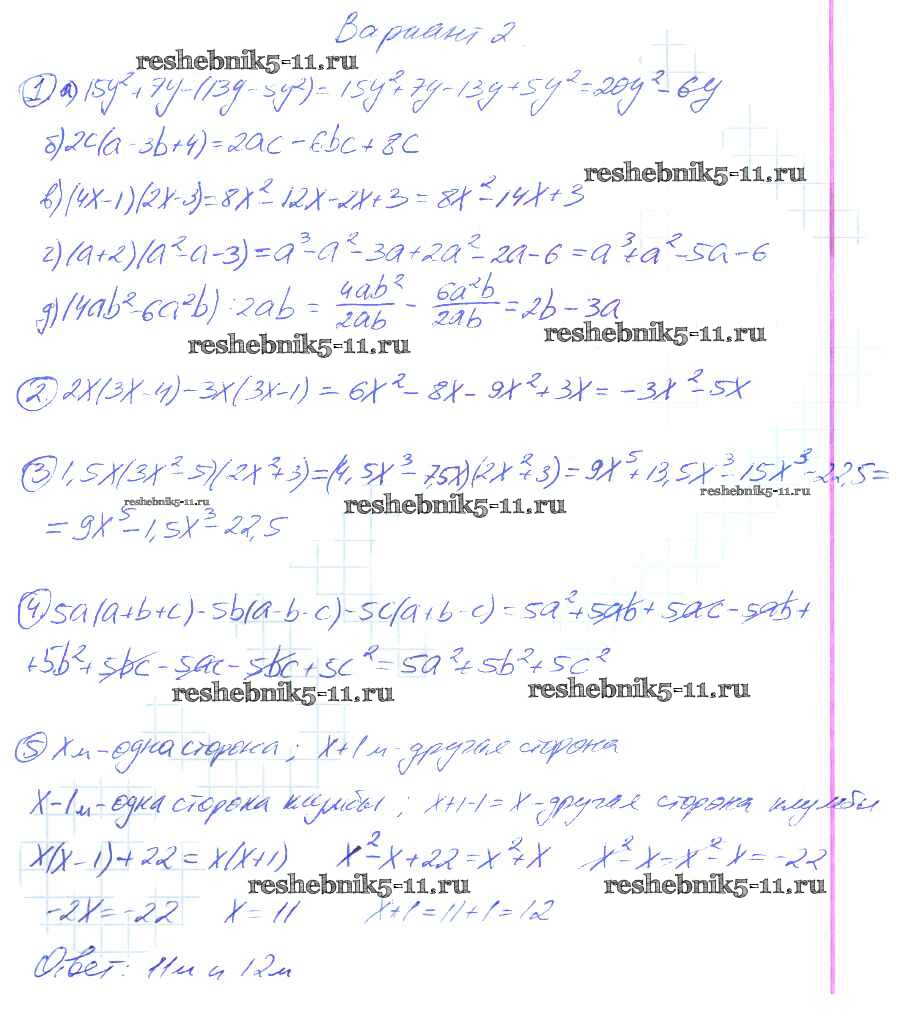 Вариант 2
reshebnik5-11.ru
① а) 15y²+7y-(13y-5y²)=15y²+7y-13y+5y²=20y²-6y
б) 2c(a-3b+4)=2ac-6bc+8c
reshebnik5-11.ru
в) (4x-1)(2x-3)=8x²-12x-2x+3=8x²-14x+3
г) (a+2)(a²-a-3)=a³-a²-3a+2a²-2a-6=a³+a²-5a-6
д) (4ab²-6a²b):2ab = 4ab²/2ab - 6a²b/2ab = 2b-3a
reshebnik5-11.ru reshebnik5-11.ru
② 2x(3x-4)-3x(3x-1)=6x²-8x-9x²+3x=-3x²-5x
③ 1,5x(3x²-5)(2x²+3)=(4,5x³-7,5x)(2x²+3)=9x⁵+13,5x³-15x³-22,5=
reshebnik5-11.ru reshebnik5-11.ru reshebnik5-11.ru
=9x⁵-1,5x³-22,5
④ 5a(a+b+c)-5b(a-b-c)-5c(a+b-c)=5a²+5ab+5ac-5ab+
+5b²+5bc-5ac-5bc+5c²=5a²+5b²+5c²
reshebnik5-11.ru reshebnik5-11.ru
⑤ xм-одна сторона; x+1м-другая сторона
x-1м-одна сторона клумбы; x+1-1=x-другая сторона клумбы
x(x-1)+22=x(x+1) x²-x+22=x²+x x²-x-x²-x=-22
reshebnik5-11.ru reshebnik5-11.ru
-2x=-22 x=11 x+1=11+1=12
Ответ: 11м и 12м